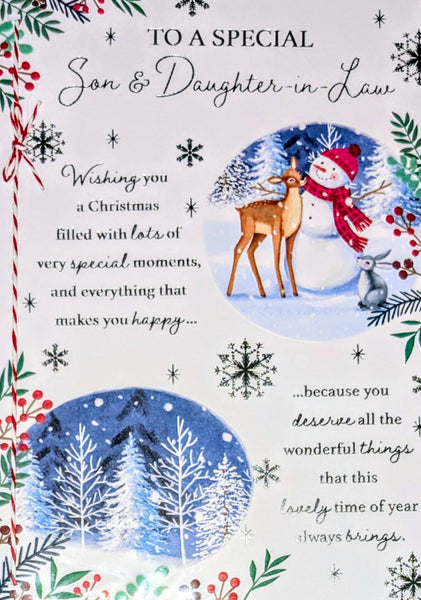 TO A SPECIAL
Son & Daughter-in-Law
Wishing you
a Christmas
filled with lots of
very special moments,
and everything that
makes you happy...
...because you
deserve all the
wonderful things
that this
lovely time of year
always brings.